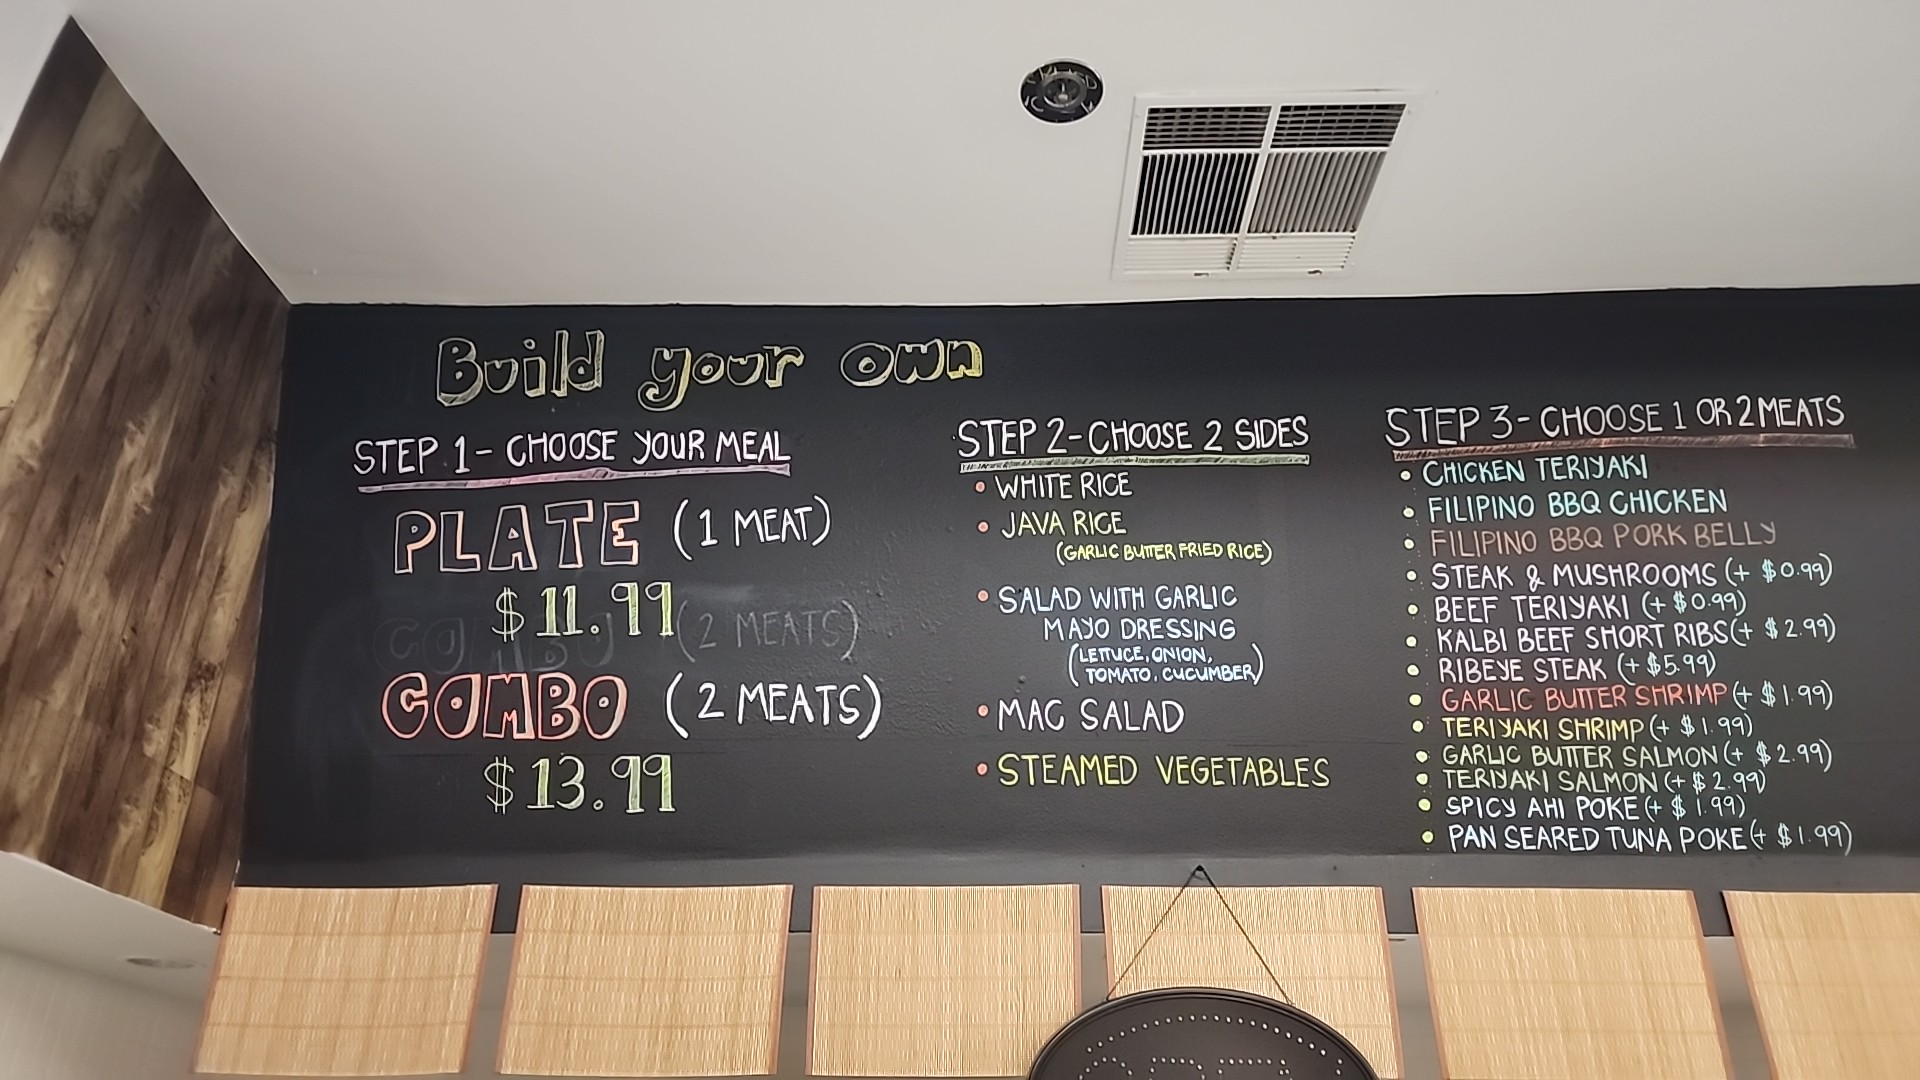 Build your own
STEP 1 - CHOOSE YOUR MEAL
PLATE (1 MEAT)
$11.99
COMBO (2 MEATS)
COMBO (2 MEATS)
$13.99
STEP 2 - CHOOSE 2 SIDES
• WHITE RICE
• JAVA RICE
(GARLIC BUTTER FRIED RICE)
• SALAD WITH GARLIC
MAYO DRESSING
(LETTUCE, ONION,
TOMATO, CUCUMBER)
• MAC SALAD
• STEAMED VEGETABLES
STEP 3 - CHOOSE 1 OR 2 MEATS
• CHICKEN TERIYAKI
• FILIPINO BBQ CHICKEN
• FILIPINO BBQ PORK BELLY
• STEAK & MUSHROOMS (+ $0.99)
• BEEF TERIYAKI (+ $0.99)
• KALBI BEEF SHORT RIBS (+ $2.99)
• RIBEYE STEAK (+ $5.99)
• GARLIC BUTTER SHRIMP (+ $1.99)
• TERIYAKI SHRIMP (+ $1.99)
• GARLIC BUTTER SALMON (+ $2.99)
• TERIYAKI SALMON (+ $2.99)
• SPICY AHI POKE (+ $1.99)
• PAN SEARED TUNA POKE (+ $1.99)